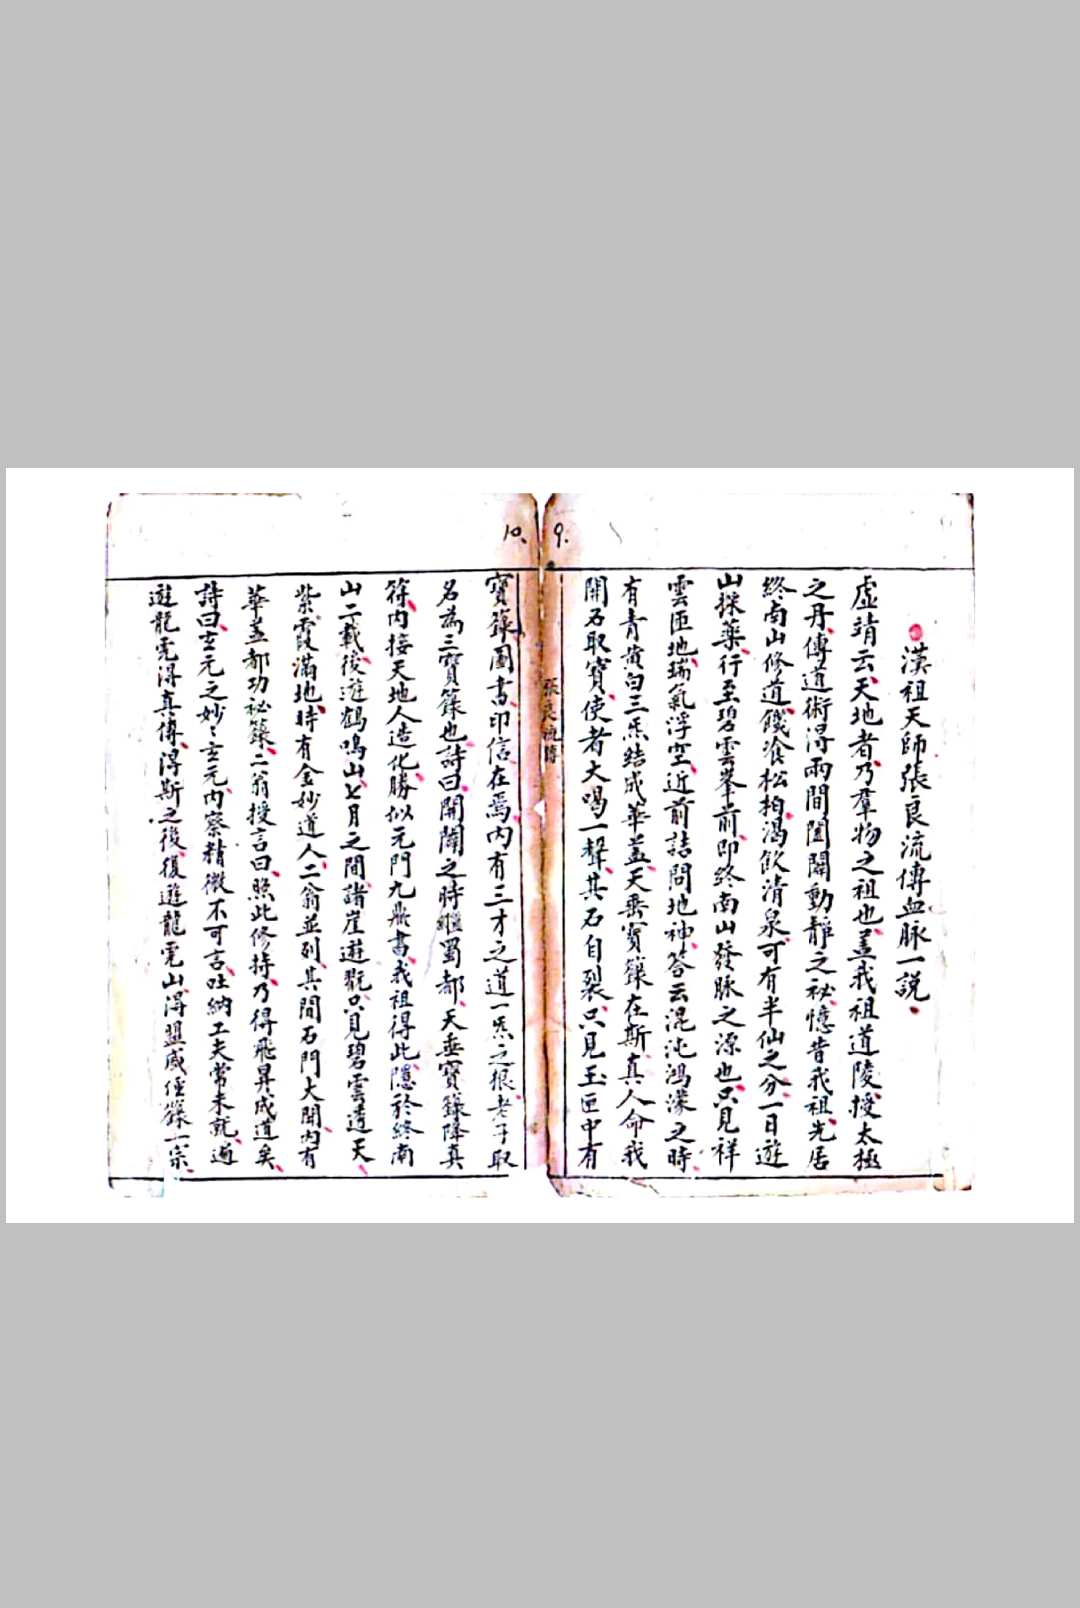 9.
漢祖天師張良流傳血脉一說
虛靖云天地者乃羣物之祖也盖我祖道陵授太極
之丹傳道術淂兩間闔闢動靜之秘憶昔我祖先居
終南山修道饑飡松柏渴飲清泉可有半仙之分一日遊
山採藥行至碧雲峯前即終南山發脉之源也只見祥
雲匝地瑞氣浮空近前詰問地神答云混沌鴻濛之時
有青黄白三炁結成華盖天垂寳籙在斯真人命我
開石取寳使者大喝一聲其石自裂只見玉匣中有
張良流傳
10.
寳籙圖書印信在焉内有三才之道一炁之根老子取
名為三寳籙也詩曰開闢之時繼蜀都天垂寳籙降真
符内接天地人造化勝似元門九鼎書我祖得此隱於終南
山二載後遊鶴鳴山七月之間諸崖遊翫只見碧雲遶天
紫霞滿地時有金妙道人二翁並列其間石門大開内有
華盖都功祕籙二翁授言曰照此修持乃得飛昇成道矣
詩曰玄元之妙〻玄元内察精微不可言吐納工夫常未就遍
遊龍虎淂真傳淂斯之後復遊龍虎山淂盟威經籙一宗